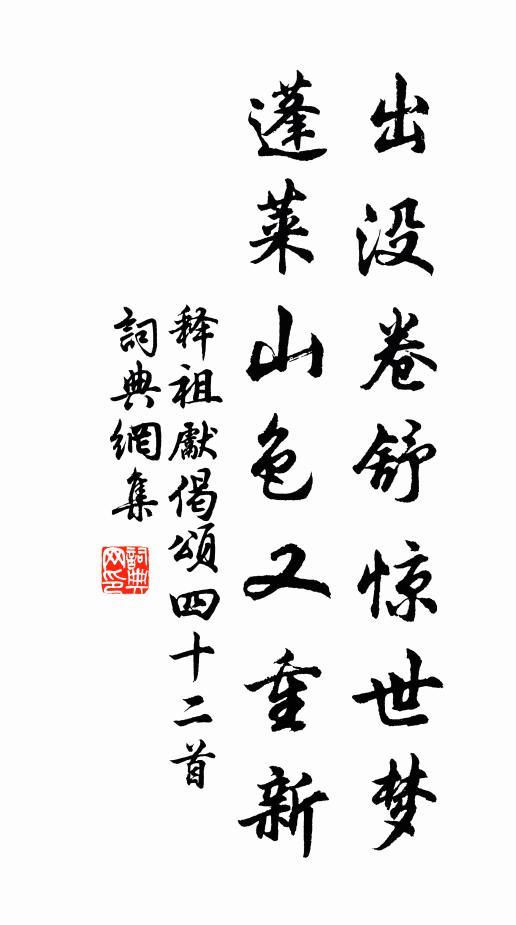 出没卷舒惊世梦
蓬莱山色又重新
释祖獻偈頌四十二首
詞典網集
詞典网印